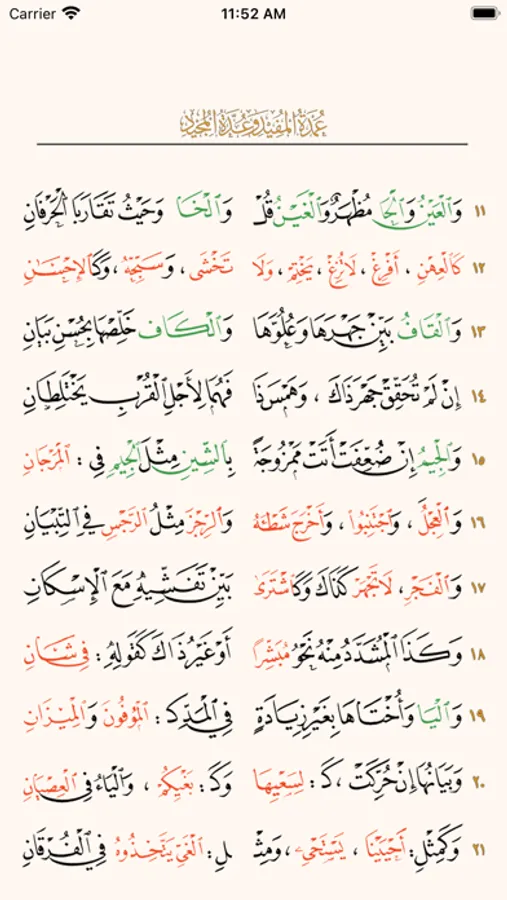 Carrier 11:52 AM
عُمْدَةُ الْمُفِيدْ وَعُدَّةُ الْمُجِيدِ
١١ وَٱلْعَيْنُ وَٱلْحَا مُظْهَرٌ وَٱلْغَيْنُ قُلْ وَٱلْخَا وَحَيْثُ تَقَارَبَا ٱلْحَرْفَانِ
١٢ كَٱلْعِهْنِ ، أَفْرِغْ ، لَا تُزِغْ ، يَخْتِمْ ، وَلَا تَخْشَىٰ ، وَسَبِّحْهُ ، وَكَٱلْإِحْسَـٰنِ
١٣ وَٱلْقَافُ بَيِّنْ جَهْرَهَا وَعُلُوَّهَا وَٱلْكَافَ خَلِّصْهَا بِحُسْنِ بَيَانِ
١٤ إِنْ لَمْ تُحَقِّقْ جَهْرَ ذَاكَ ، وَهَمْسَ ذَا فَهُمَا لِأَجْلِ ٱلْقُرْبِ يَخْتَلِطَانِ
١٥ وَٱلْجِيمُ إِنْ ضَعُفَتْ أَتَتْ مَمْزُوجَةً بِٱلشِّينِ مِثْلَ ٱلْجِيمِ فِي : ٱلْمَرْجَانِ
١٦ وَٱلْعِجْلَ ، وَٱجْتَنِبُوا۟ ، وَأَخْرَجَ شَطْـَٔهُۥ وَٱلرِّجْزَ مِثْلُ ٱلرِّجْسِ فِي ٱلتِّبْيَانِ
١٧ وَٱلْفَجْرِ، لَا تَجْهَرْ كَذَاكَ وَكَٱشْتَرَىٰ بَيِّنْ تَفَشِّيَهُ مَعَ ٱلْإِسْكَانِ
١٨ وَكَذَا ٱلْمُشَدَّدُ مِنْهُ نَحْوُ مُبَشِّرًا أَوْ غَيْرُ ذَاكَ كَقَوْلِهِ : فِي شَـَٔانِ
١٩ وَٱلْيَا وَأُخْتَاهَا بِغَيْرِ زِيَادَةٍ فِي ٱلْمَدِّ كَـ : ٱلْمُوفُونَ وَٱلْمِيزَانِ
٢٠ وَبَيَانُهَا إِنْ حُرِّكَتْ ، كَـ : لِسَعْيِهَا وَكَـ : بَغْيِكُمْ ، وَٱلْيَاءُ فِي ٱلْعِصْيَانِ
٢١ وَكَمِثْلِ: أَحْيَيْنَا ، يَسْتَحْىِۦ ، وَمِثْـ ـلِ : ٱلْغَىِّ يَتَّخِذُوهُ فِي ٱلْفُرْقَانِ